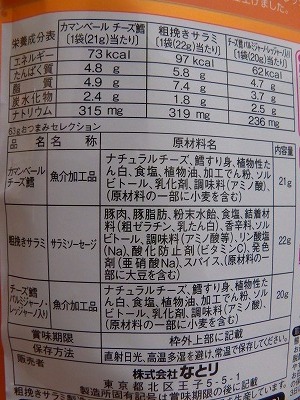 上げました。
栄養成分表
カマンベール チーズ鱈
〔1袋(21g)当たり〕
粗挽きサラミ
〔1袋(22g)当たり〕
〔1袋(20g)当たり〕
エネルギー 73 kcal 97 kcal 62 kcal
たんぱく質 4.8 g 5.8 g 4.7 g
脂質 4.9 g 7.4 g 3.7 g
炭水化物 2.4 g 1.8 g 2.5 g
ナトリウム 315 mg 319 mg 236 mg
63gおつまみセレクション
品名 名称 原材料名 内容量
カマンベール
チーズ鱈
魚介加工品
ナチュラルチーズ、鱈すり身、植物性た
ん白、食塩、植物油、加工でん粉、ソル
ビトール、乳化剤、調味料(アミノ酸)、
(原材料の一部に小麦を含む)
21g
粗挽きサラミ
サラミソーセージ
豚肉、豚脂肪、粉末水飴、食塩、結着材
料(粗ゼラチン、乳たん白)、香辛料、ソル
ビトール、調味料(アミノ酸等)、リン酸塩
(Na)、酸化防止剤(ビタミンC)、発色
剤(亜硝酸Na)、スパイス、(原材料の一
部に大豆を含む)
22g
チーズ鱈
パルミジャーノ・
レッジャーノ入り
魚介加工品
ナチュラルチーズ、鱈すり身、植物性た
ん白、食塩、植物油、加工でん粉、ソル
ビトール、乳化剤、調味料(アミノ酸)、
(原材料の一部に小麦を含む)
20g
賞味期限 枠外上部に記載
保存方法 直射日光、高温多湿を避け、常温で保存してください。
販売者 株式会社なとり
東京都北区王子5-5-1
製造所固有記号は賞味期限の後に記載